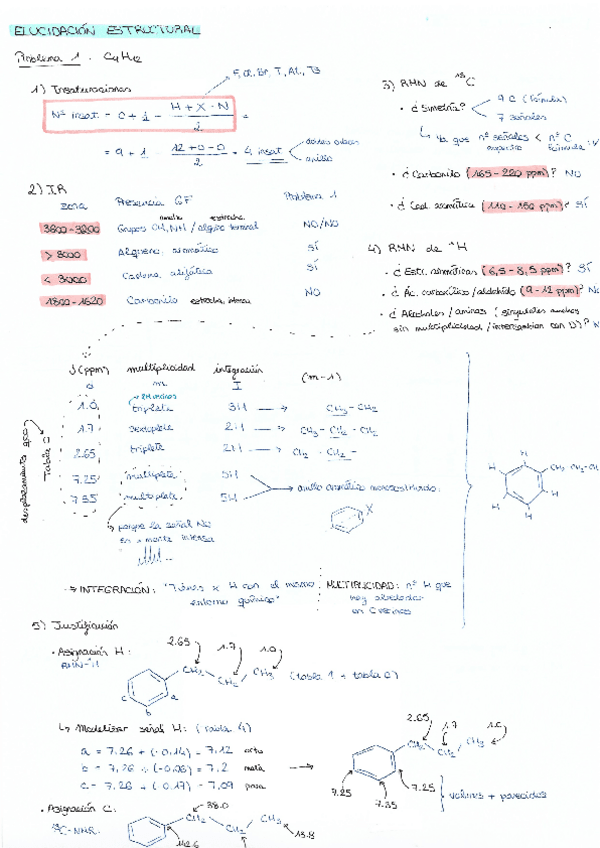 ELUCIDACIÓN ESTRUCTURAL
Problema 1. C9H12
1) Insaturaciones
F, Cl, Br, I, At, Ts
Nº insat = C + 1 - H + X - N / 2 =
= 9 + 1 - 12 + 0 - 0 / 2 = 4 insat.
dobles enlaces
anillo
2) IR
zona Presencia GF Problema 1
ancha estrecha
3600-3200 Grupos OH, NH / alquino terminal NO/NO
> 3000 Alqueno, aromático SÍ
< 3000 Cadena alifática SÍ
1800-1620 Carbonilo estrecha, intensa NO
3) RMN de 13C
• ¿Simetría?
9 C (fórmula)
7 señales
↳ Ya que nº señales < nº C
espectro fórmula
• ¿Carbonilo (165-220 ppm)? NO
• ¿Cad. aromática (110-160 ppm)? SÍ
4) RMN de 1H
• ¿Estr. aromáticas (6,5-8,5 ppm)? SÍ
• ¿Ác. carboxílico / aldehído (9-12 ppm)? NO
• ¿Alcoholes / aminas (singuletes anchos
sin multiplicidad / intercambian con D)?
δ (ppm) multiplicidad integración
m I (m-1)
2H vecinos
1.0 triplete 3H → CH3-CH2
1.7 sextuplete 2H → CH3-CH2-CH2
2.65 triplete 2H → CH2-CH2-
7.25 multiplete 5H
7.35 multiplete 5H
anillo aromático monosustituido:
X
desplazamiento
Tabla 0
porque la señal NO
H
H
H
H
H
CH2-CH2-CH3
→ INTEGRACIÓN: "Tienes x H con el mismo
entorno químico"
MULTIPLICIDAD: nº H que
hay alrededor
en C vecinos
5) Justificación
• Asignación H:
RMN-1H
2.65 1.7 1.0
CH2 CH2 CH3
a
b
c
(tabla 1 + tabla 0)
↳ Modelizar señal H: (tabla 4)
a = 7.26 + (-0.14) = 7.12 orto
b = 7.26 + (-0.06) = 7.2 meta
c = 7.26 + (-0.17) = 7.09 para
2.65 1.7 1.0
CH2 CH2 CH3
7.25
7.35
7.25
valores + parecidos
• Asignación C:
13C-NMR.
38.0
CH2 CH2 CH3
13.8
142.6